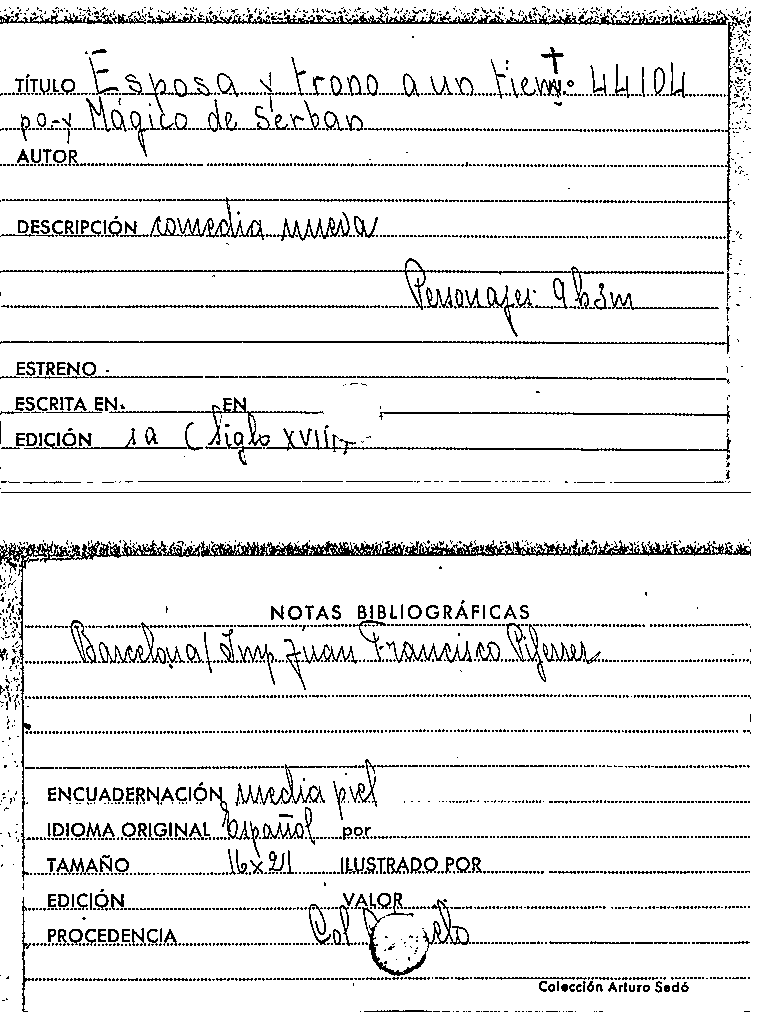 TÍTULO Esposa y trono a un tiem- N.º 44104
po-y Mágico de Serban
AUTOR
DESCRIPCIÓN comedia nueva
Personajes 9h3m
ESTRENO
ESCRITA EN. EN
EDICIÓN sa (Siglo XVIII
NOTAS BIBLIOGRÁFICAS
Barcelona/ Imp Juan Francisco Piferrer
ENCUADERNACIÓN media piel
IDIOMA ORIGINAL Español por
TAMAÑO 16x21 ILUSTRADO POR
EDICIÓN VALOR
PROCEDENCIA Col
Colección Arturo Sedó